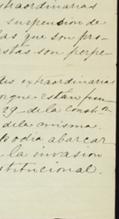 traordinarias
suspension de
as que son pro-
stas son perpe-
des extraordinarias
que estan pre
29 de la Constn
de la misma.
Podia abarcar
la invasion
stitucional.